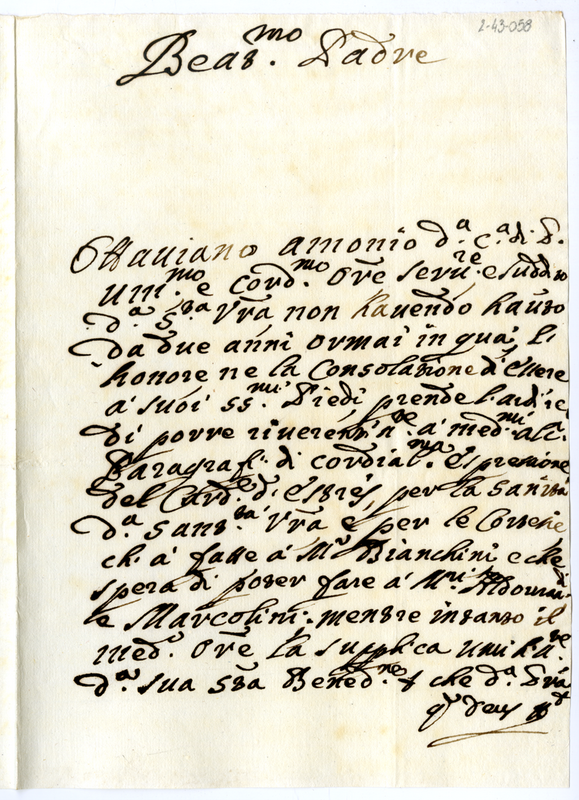 2-43-058
Beat.mo Padre
Ottaviano Antonio d.a C.a di S.
Um.mo e cord.mo Ore serv.re e suddito
d.a S.ta Vra non havendo hauto
da due anni ormai in quà, l'
honore ne la Consolatione d'essere
à suoi SS.mi Piedi, prende l'ardire
di porre riverentem.te à med.mi alc.i
Paragrafi di cordial.ma espressione
del Card.e d'Estrés, per la sanità
d.a Sant.tà Vra e per le Cortesie
ch. à fatte à M.r Bianchini e che
spera di poter fare à M.ri Aldovrandi
e Marcolini. mentre intanto il
med. Ore la supplica umilia.te
d.a sua sta Bened.ne che d.a Pría
q.m Deus